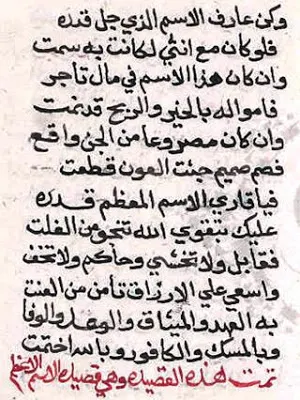 وكن عارف الاسم الذي جل قدره
فلو كان مع انثي لكانت به سمت
وان كان هذا الاسم في مال تاجر
فامواله بالخير والربح قد نمت
وان كان مصروعا من الجن واقع
فصم صميم جئت العون قطعت
فيا قاري الاسم المعظم قدره
عليك بتقوي الله تنجو من الفلت
فقابل ولا تخشي وحاكم ولا تخف
واسعي علي الارزاق تأمن من العنت
به العهد والميثاق والوعد والوفا
وبالمسك والكافور وباسـ اختمت
تمت هذه القصيده وهي قصيدة الاسم الاعظم